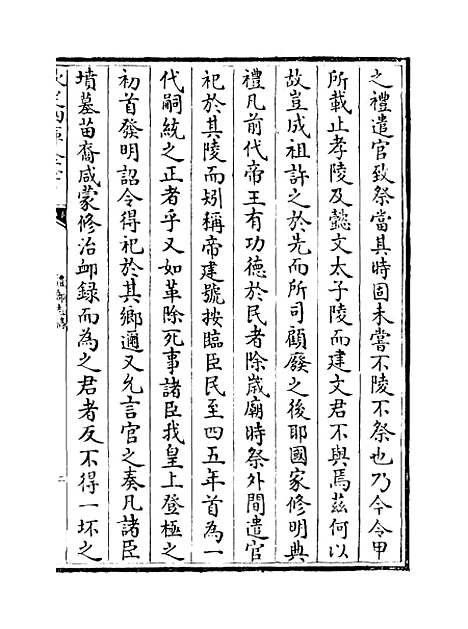 之禮遣官致祭當其時固未嘗不陵不祭也乃今令甲
所載止孝陵及懿文太子陵而建文君不與焉茲何以
故豈成祖許之於先而所司顧廢之後耶國家修明典
禮凡前代帝王有功德於民者除歲廟時祭外間遣官
祀於其陵而矧稱帝建號按臨臣民至四五年首為一
代嗣統之正者乎又如革除死事諸臣我皇上登極之
初首發明詔令得祀於其鄉邇又允言官之奏凡諸臣
墳墓苗裔咸蒙修治䘏録而為之君者反不得一坏之